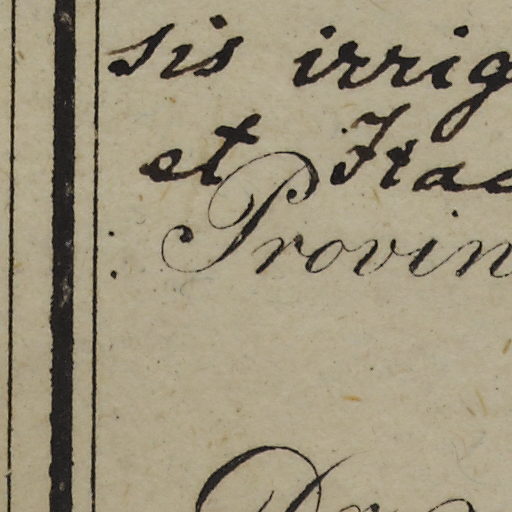 sis irrig
et Itac
: Provin